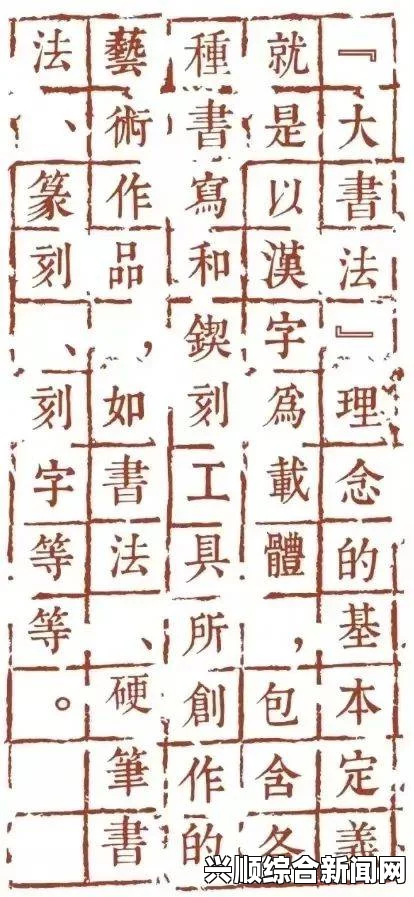 『大書法』理念的基本定義
就是以漢字爲載體，包含各
種書寫和鍥刻工具所創作的
藝術作品，如書法、硬筆書
法、篆刻、刻字等等。
兴顺综合新闻网